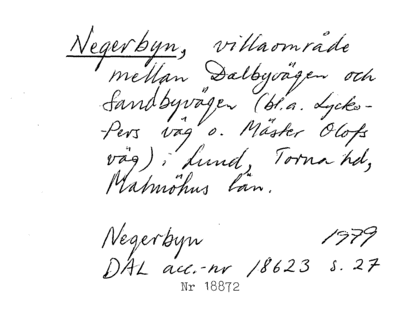 Negerbyn, villaområde
mellan Dalbyvägen och
Sandbyvägen (bl.a. Lycko-
Pers väg o. Mäster Olofs
väg) i Lund, Torna hd,
Malmöhus län.
Negerbyn 1979
DAL acc.-nr 18623 s. 27
Nr 18872